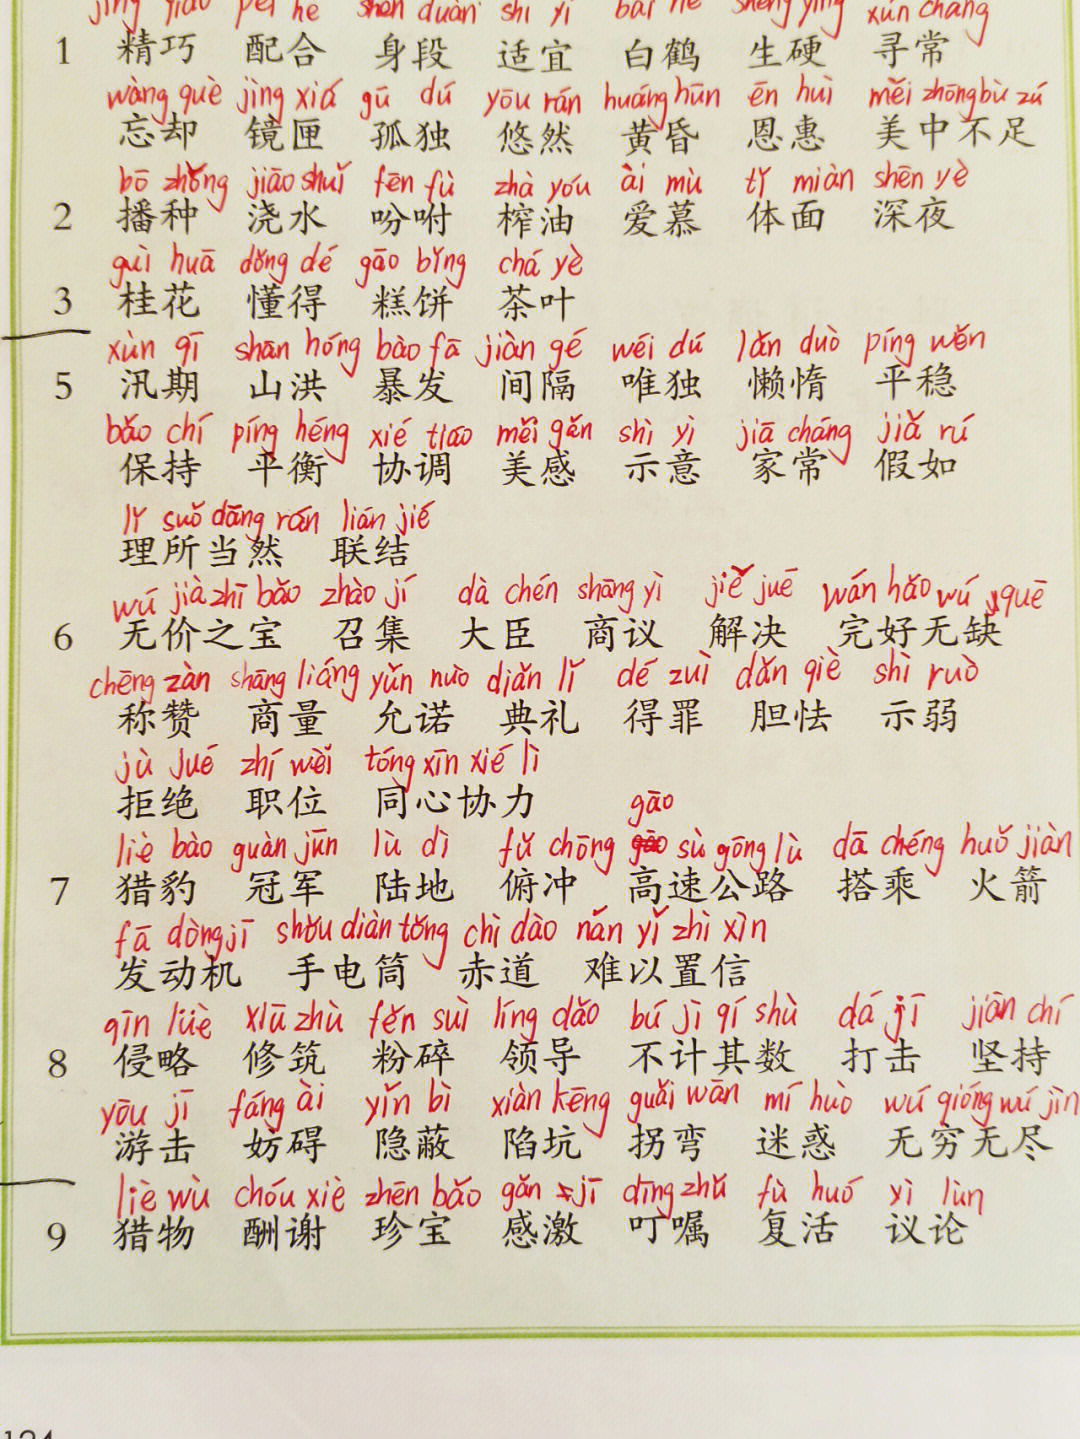 jīng qiǎo pèi hé shēn duàn shì yí bái hè shēng yìng xún cháng
1 精巧 配合 身段 适宜 白鹤 生硬 寻常
wàng què jìng xiá gū dú yōu rán huáng hūn ēn huì měi zhōng bù zú
忘却 镜匣 孤独 悠然 黄昏 恩惠 美中不足
bō zhǒng jiāo shuǐ fēn fù zhà yóu ài mù tǐ miàn shēn yè
2 播种 浇水 吩咐 榨油 爱慕 体面 深夜
guì huā dǒng dé gāo bǐng chá yè
3 桂花 懂得 糕饼 茶叶
xùn qī shān hóng bào fā jiàn gé wéi dú lǎn duò píng wěn
5 汛期 山洪 暴发 间隔 唯独 懒惰 平稳
bǎo chí píng héng xié tiáo měi gǎn shì yì jiā cháng jiǎ rú
保持 平衡 协调 美感 示意 家常 假如
lǐ suǒ dāng rán lián jié
理所当然 联结
wú jià zhī bǎo zhào jí dà chén shāng yì jiě jué wán hǎo wú quē
6 无价之宝 召集 大臣 商议 解决 完好无缺
chēng zàn shāng liáng yǔn nuò diǎn lǐ dé zuì dǎn qiè shì ruò
称赞 商量 允诺 典礼 得罪 胆怯 示弱
jù jué zhí wèi tóng xīn xié lì
拒绝 职位 同心协力
gāo
liè bào guàn jūn lù dì fǔ chōng sù gōng lù dā chéng huǒ jiàn
7 猎豹 冠军 陆地 俯冲 高速公路 搭乘 火箭
fā dòng jī shǒu diàn tǒng chì dào nán yǐ zhì xìn
发动机 手电筒 赤道 难以置信
qīn lüè xiū zhù fěn suì lǐng dǎo bú jì qí shù dá jī jiān chí
8 侵略 修筑 粉碎 领导 不计其数 打击 坚持
yóu jī fáng ài yǐn bì xiàn kēng guǎi wān mí huò wú qióng wú jìn
游击 妨碍 隐蔽 陷坑 拐弯 迷惑 无穷无尽
liè wù chóu xiè zhēn bǎo gǎn jī dīng zhǔ fù huó yì lùn
9 猎物 酬谢 珍宝 感激 叮嘱 复活 议论